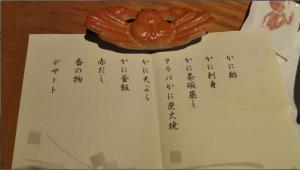 かに酢
かに刺身
かに茶碗蒸し
タラバかに炭火焼
かに天ぷら
かに釜飯
赤だし
香の物
デザート